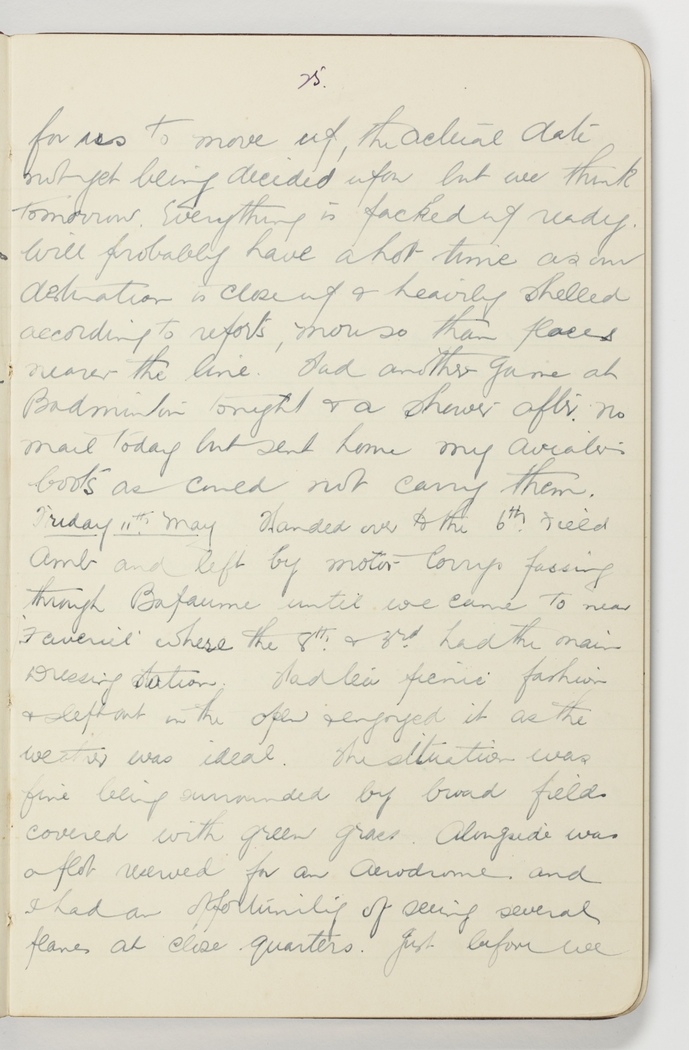 25.
for us to move up, the actual date
not yet being decided upon but we think
tomorrow. Everything is packed up ready.
Will probably have a hot time as our
destination is close up & heavily shelled
according to reports, more so than places
nearer the line. Had another game at
Badminton tonight & a shower after. no
mail today but sent home my aviators
boots as could not carry them.
Friday 11th May Handed over to the 6th Field
Amb and left by motor lorry passing
through Bapaume until we came to near
'Favreuil' where the 8th & 3rd had the main
Dressing Station. Had tea picnic fashion
& slept out in the open & enjoyed it as the
weather was ideal. The situation was
fine being surrounded by broad fields
covered with green grass. Alongside was
a plot reserved for an Aerodrome. and
I had an opportunity of seeing several
planes at close quarters. Just before we